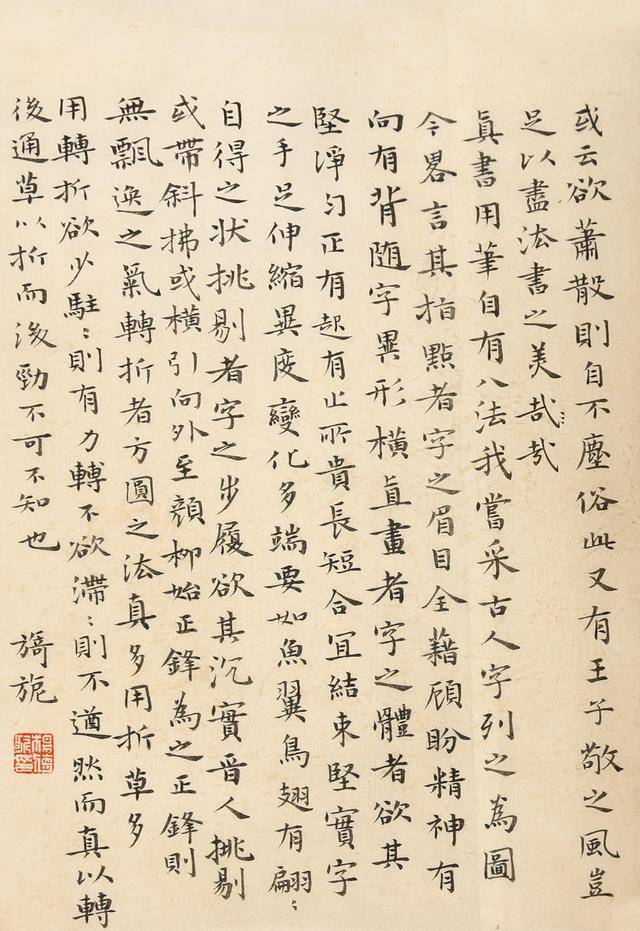 或云欲蕭散則自不塵俗此又有王子敬之風豈
足以盡法書之美哉哉
真書用筆自有八法我嘗采古人字列之為圖
今畧言其指點者字之眉目全藉顧盼精神有
向有背随字異形横直畫者字之體者欲其
堅淨匀正有起有止所貴長短合宜結束堅實字
之手足伸縮異度變化多端要如魚翼鳥翅有翩〻
自得之状挑剔者字之步履欲其沉實晉人挑剔
或帶斜拂或横引向外至顔柳始正鋒為之正鋒則
無飄逸之氣轉折者方圓之法真多用折草多
用轉折欲少駐〻則有力轉不欲滞〻則不遒然而真以轉
後通草以折而後勁不可不知也
旖旎